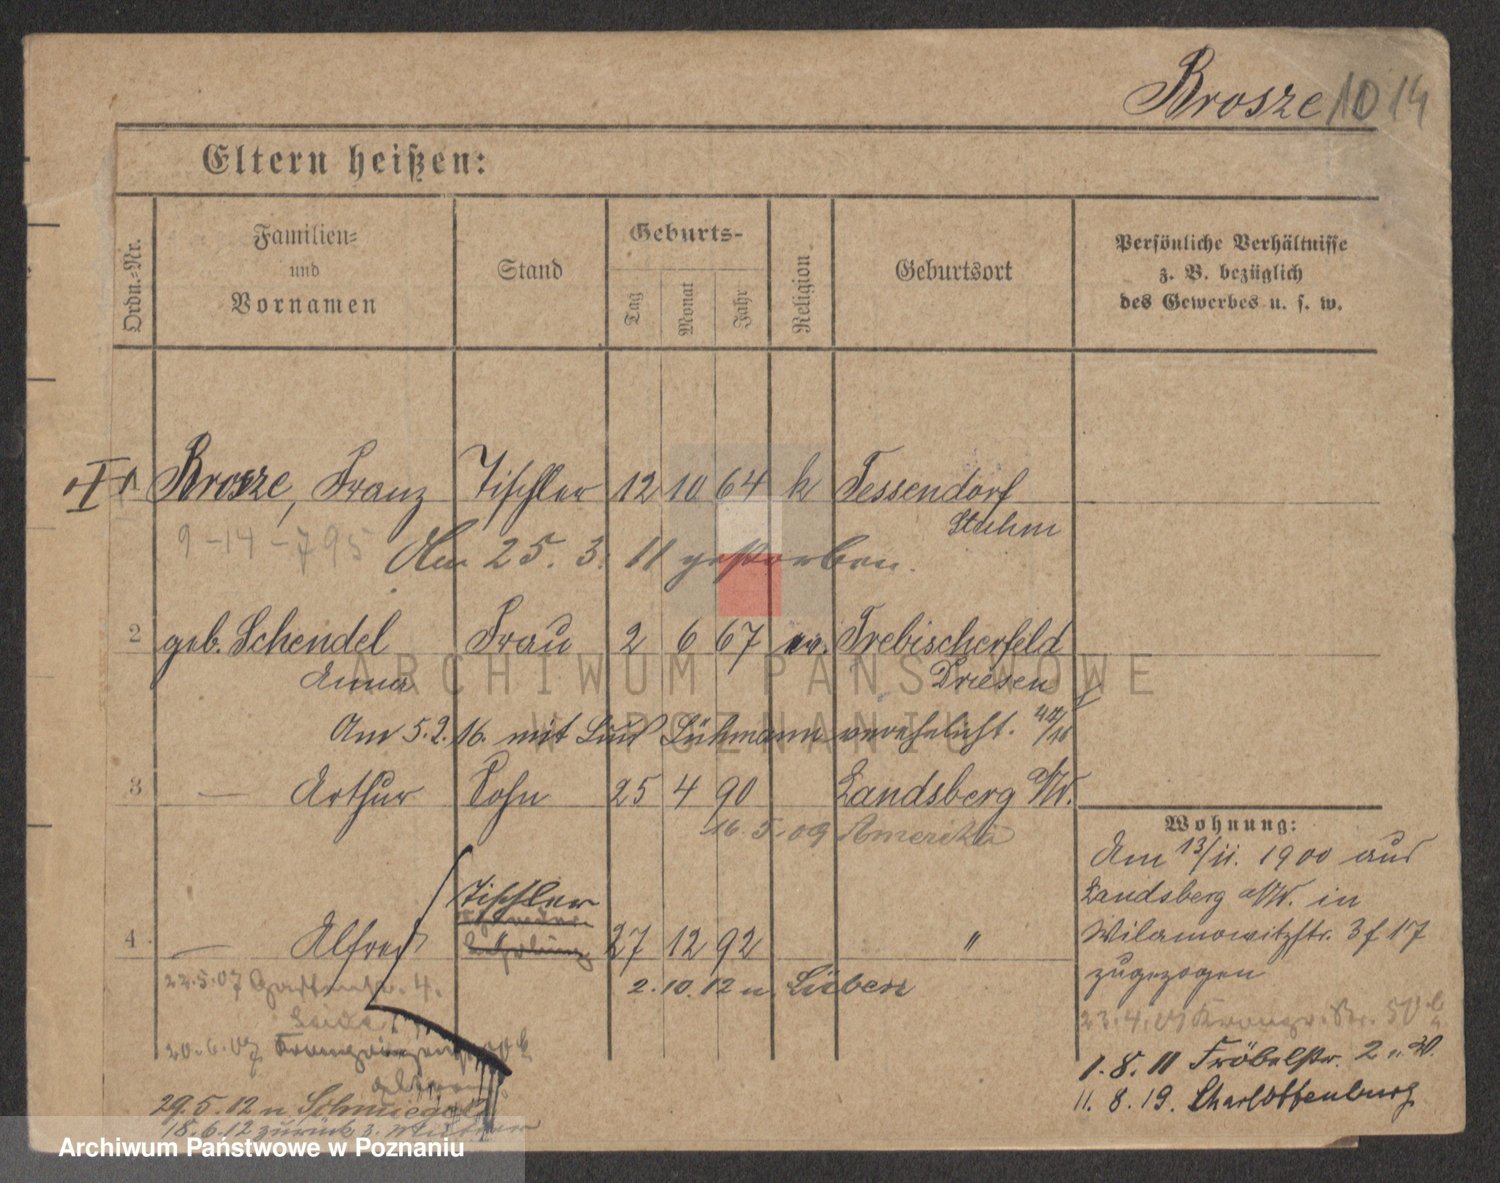 Brosze 10 14
Eltern heißen:
Ordn.-Nr.
Familien- und Vornamen
Stand
Geburts-
Tag
Monat
Jahr
Religion
Geburtsort
Persönliche Verhältnisse
z. B. bezüglich
des Gewerbes u. s. w.
Brosze, Franz Tischler 12 10 64 k Tessendorf
Stuhm
9-14-795 Am 25. 3. 11 gestorben.
2 geb. Schendel Frau 2 6 67 ev. Trebischerfeld
Anna Driesen
Am 5.2.16. mit Lühmann verehelicht.
3 — Arthur Sohn 25 4 90 Landsberg a/W.
16. 5. 09 Amerika
Tischler
4 — Alfred 27 12 92 "
2. 10. 12 n. Lüben
22.5.07 4.
20.6.07
29.5.12 n. Schmiegel
18.6.12 zurück z.
Wohnung:
Am 13/11. 1900 aus
Landsberg a/W. in
Wilamowitzstr. 3 f 17
zugezogen
23.4.
1. 8. 11 Fröbelstr. 2
11. 8. 19. Charlottenburg
ARCHIWUM PAŃSTWOWE
W POZNANIU
Archiwum Państwowe w Poznaniu